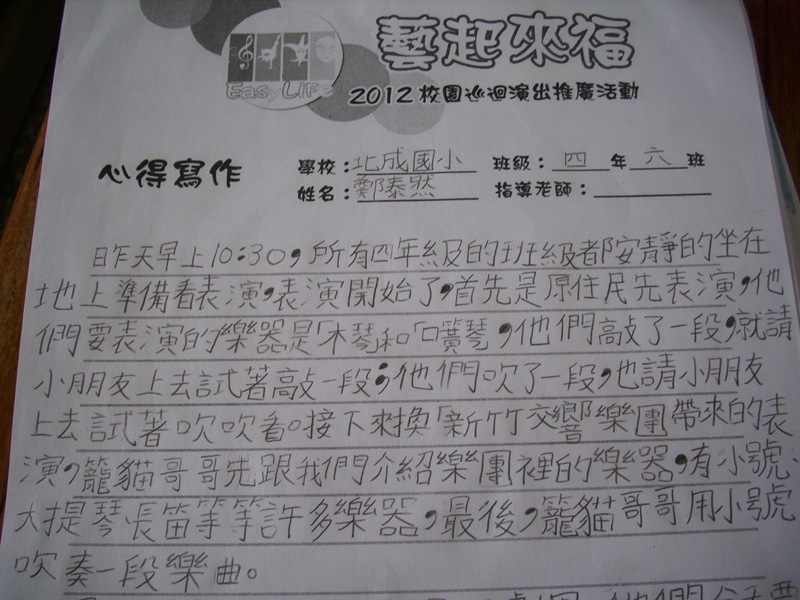 Easy LiFe
藝起來福
2012校園巡迴演出推廣活動
心得寫作
學校：北成國小 班級：四年六班
姓名：鄭泰然 指導老師：
昨天早上10:30，所有四年級的班級都安靜的坐在
地上準備看表演，表演開始了，首先是原住民先表演，他
們要表演的樂器是「木琴和「口簧琴，他們敲了一段，就請
小朋友上去試著敲一段；他們吹了一段，也請小朋友
上去試著吹吹看。接下來換「新竹交響樂團帶來的表
演，籠貓哥哥先跟我們介紹樂團裡的樂器，有小號、
大提琴、長笛等等許多樂器，最後，籠貓哥哥用小號
吹奏一段樂曲。